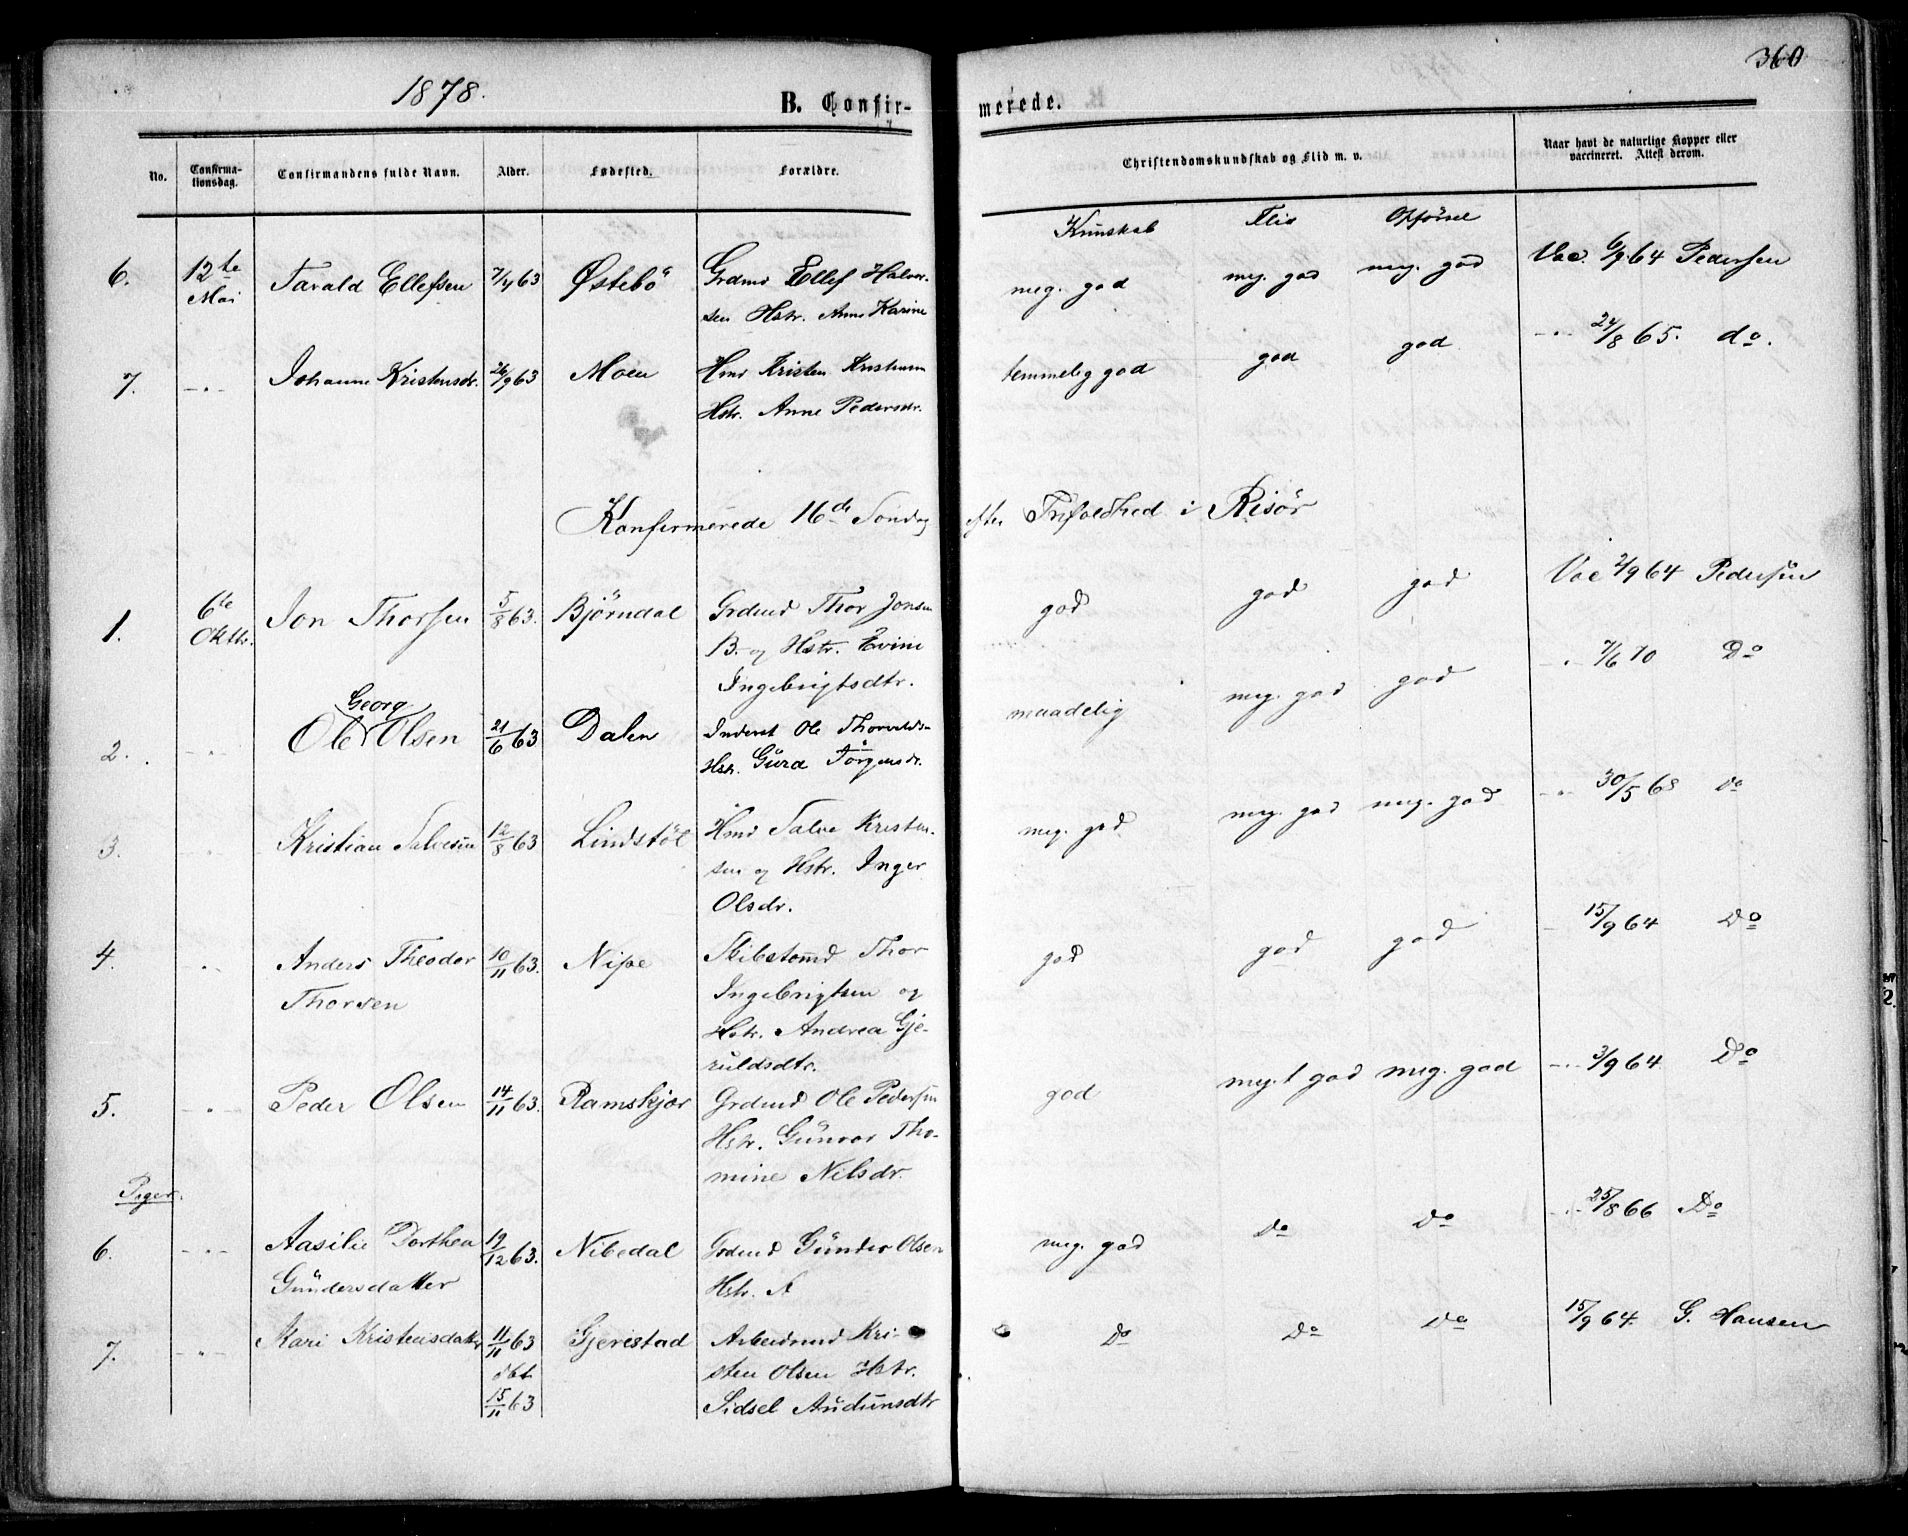 1878.
B. Confir-
merede.
360
No.
Confirma-
tionsdag.
Confirmandens fulde Navn.
Alder.
Fødested.
Forældre.
Christendomskundskab og Flid m. v.
Naar havt de naturlige Kopper eller
vaccineret. Attest derom.
Kunskab Flid Opførsel
6. 12te Tarald Ellefsen 7/4 63 Østebö Grdmd Ellef Halvor- meg. god meg. god meg. god Vac. 6/9 64 Pedersen
Mai sen Hstr. Anne Karine
7. -"- Johanne Kristensdr. 26/9 63 Moen Hmd Kristen Kristensen temmelig god god god -"- 24/8 65. do.
Hstr. Anne Pedersdr.
Konfirmerede 16de Söndag efter Trefoldhed i Risör
1. 6te Jon Thorsen 5/8 63. Björndal Grdmd Thor Jonsen god god god Vac 2/9 64 Pedersen
Oktbr. B. og Hstr. Evine
Ingebrigtsdtr.
Georg
2. " Ole Olsen 21/6 63 Dalen Inderst Ole Thorvalds- maadelig meg. god god " 7/6 70 Do
Hstr. Gurd Törgensdr.
3. " Kristian Salvesen 12/8 63 Lindstöl Hmd Salve Kristen- meg. god meg. god meg. god " 30/5 68 do
sen og Hstr. Inger
Olsdr.
4. " Anders Theodor 10/11 63. Nipe Skibstømd Thor god god god - 15/9 64 Do
Thorsen Ingebrigtsen og
Hstr. Andrea Gje-
ruldsdtr.
5. " Peder Olsen 14/11 63. Ramskjær Grdmd Ole Pedersen god meg.t god meg. god -"- 3/9 64 Do
Hstr. Gunvor Tho-
mine Nilsdr.
Piger.
6. -"- Aasilie Dorthea 19/12 63. Nibedal Grdmd Gunder Olsen meg. god Do Do -"- 25/8 66 Do
Gundersdatter Hstr. A
7. -"- Kari Kristensdatter 11/11 63 Gjerestad Arbeidsmd Kri- Do Do Do 15/9 64. G. Hansen
dbt. sten Olsen Hstr.
15/11 63 Sidsel Audunsdtr